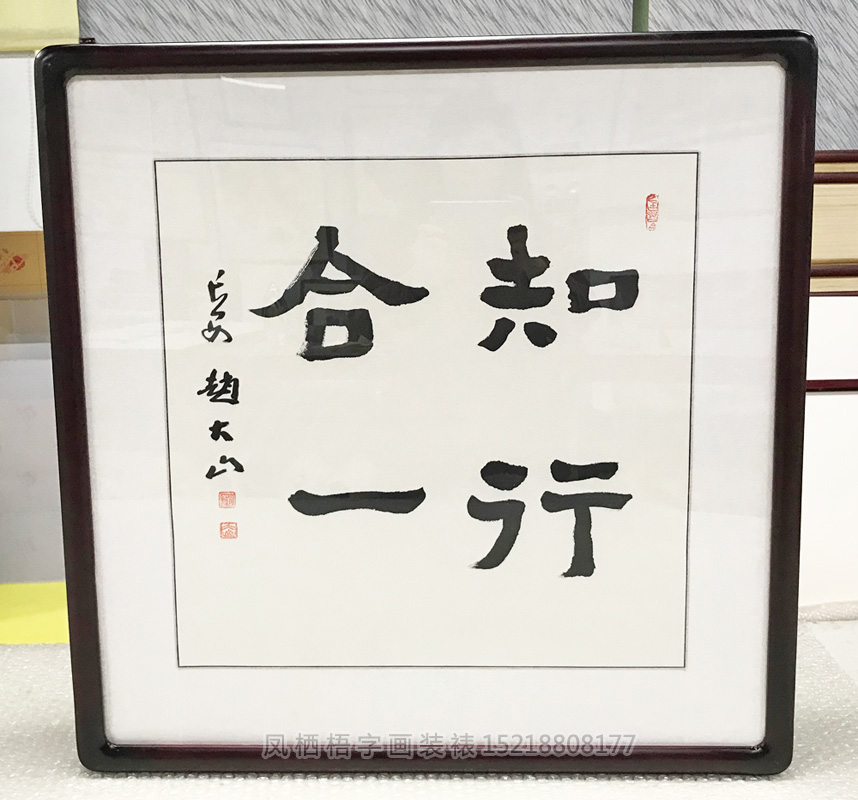 知行
合一
長安趙大山
凤栖梧字画装裱15218808177